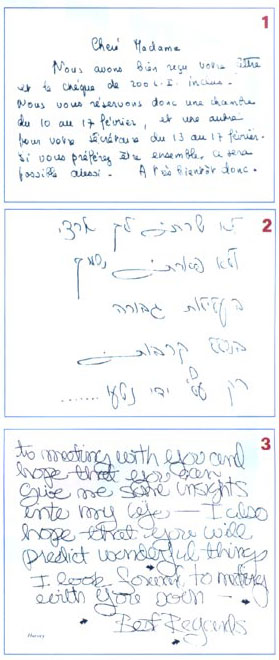 1
Chère Madame
Nous avons bien reçu votre lettre
et le chèque de 200 L.I. inclus.
Nous vous réservons donc une chambre
du 10 au 17 février, et une autre
pour votre secrétaire du 13 au 17 février.
Si vous préférez être ensemble, ce sera
possible aussi. A très bientôt donc.
2
לא שרתי לך ארצי,
ולא פארתי שמך
בעלילות גבורה
בשלל קרבות
רק עץ ידי נטעו .......
3
to meeting with you and
hope that you can
give me some insights
into my life – I also
hope that you will
predict wonderful things
I look forward to meeting
with you soon –
Best Regards
Harvey